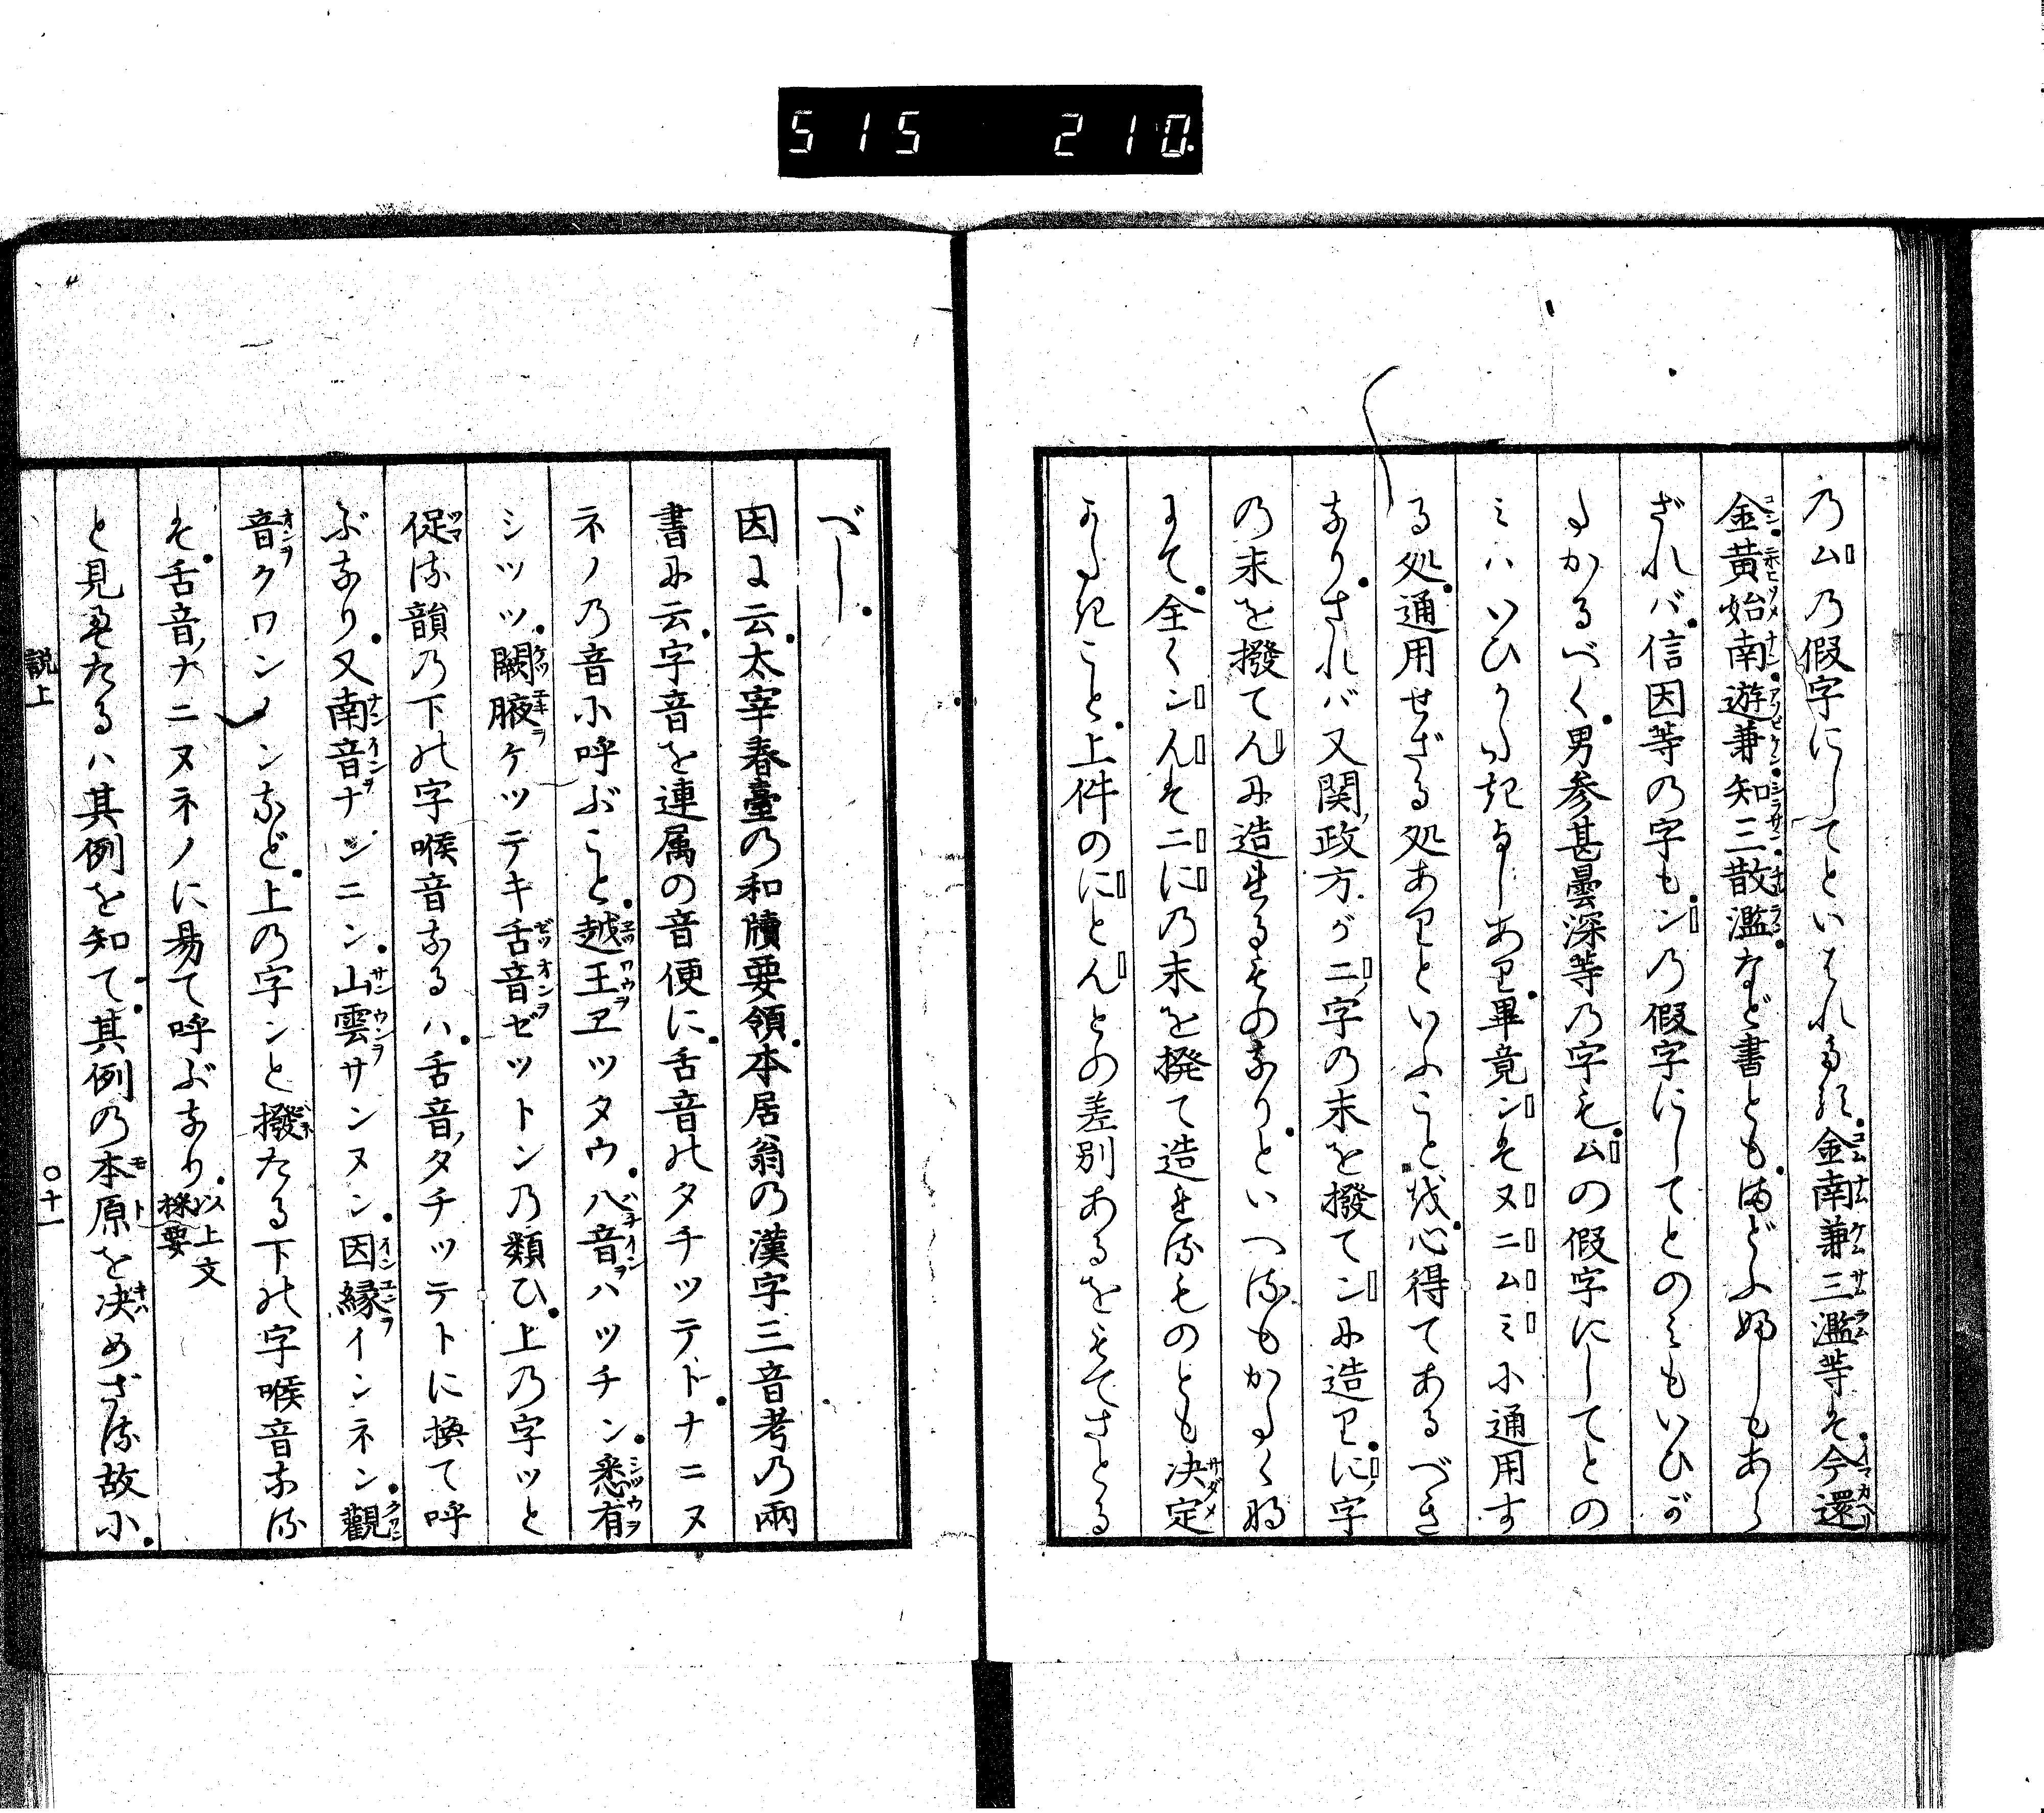 515 210.
乃ムの假字にしてといはれたれ金南兼三濫等を今還
金黄始南遊兼知三散濫など書ともまどふましもあら
ざれバ信因等の字もンの假字にしてとのみもいひが
たかるべく男参甚曇深等乃字もムの假字にしてとの
ミハいひがたきよしあり畢竟ンをヌニムミ小通用す
る処通用せざる処ありといふこと
心得てあるべき
なりされバ又関政方がニ字の末を撥てンに造りに字
の末を撥てんに造れるものなりといへるもかた
にて全くンんをニに乃末を撥て造れるものとも决定
がたきこと上件のにとんとの差別あるをもてさとる
べし
因に云太宰春臺の和牘要領本居翁の漢字三音考の兩
書に云字音を連属の音便に舌音のタチツテトナニヌ
ネノの音小呼ぶこと越王ヱツタウ八音ハツチン悉有
シツツ闕腋ケツテキ舌音ゼツトン乃類ひ上乃字ツと
促る韻の下の字喉音なるハ舌音タチツテトに換て呼
ぶなり又南音ナンニン山雲サンヌン因縁インネン觀
音クワンノンなど上の字ンと撥たる下の字喉音なる
を舌音ナニヌネノに易て呼ぶなり以上文採要
と見えたるハ其例を知て其例の本原を决めざる故小
説上 〇十一